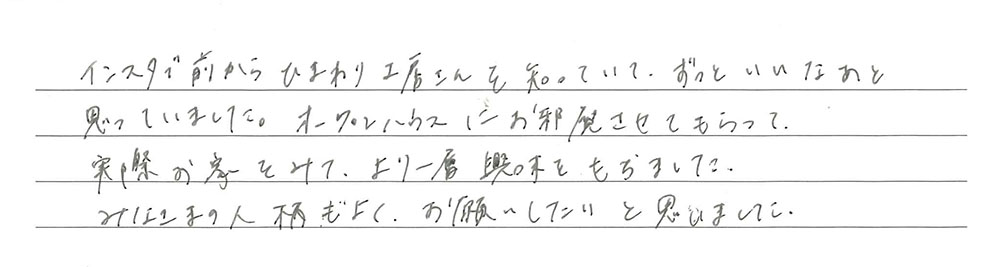 インスタで前からひまわり工房さんを知っていて、ずっといいなあと
思っていました。オープンハウスにお邪魔させてもらって、
実際お家をみて、より一層興味をもちました。
みなさまの人柄もよく、お願いしたいと思いました。